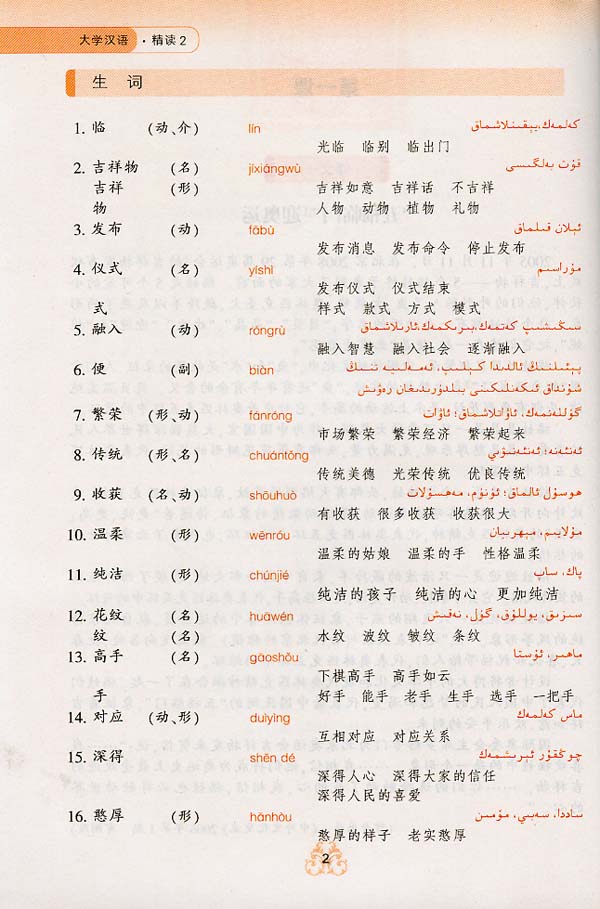 大学汉语·精读2
生 词
1. 临 (动、介) lín كەلمەك،يېقىنلاشماق
光临 临别 临出门
2. 吉祥物 (名) jíxiángwù قۇت بەلگىسى
吉祥 (形) 吉祥如意 吉祥话 不吉祥
物 人物 动物 植物 礼物
3. 发布 (动) fābù ئېلان قىلماق
发布消息 发布命令 停止发布
4. 仪式 (名) yíshì مۇراسىم
发布仪式 仪式结束
式 样式 款式 方式 模式
5. 融入 (动) róngrù سىڭىشىپ كەتمەك،بىرىكمەك،ئارىلاشماق
融入智慧 融入社会 逐渐融入
6. 便 (副) biàn پېئىلنىڭ ئالدىدا كېلىپ، ئەمەلىيە تنىڭ
شۇنداق ئىكەنلىكىنى بىلدۈرىدىغان رەۋىش
7. 繁荣 (形、动) fánróng گۈللەنمەك، ئاۋاتلاشماق؛ ئاۋات
市场繁荣 繁荣经济 繁荣起来
8. 传统 (形、名) chuántǒng ئەنئەنە؛ ئەنئەنىۋىي
传统美德 光荣传统 优良传统
9. 收获 (名、动) shōuhuò ھوسۇل ئالماق؛ ئۈنۈم، مەھسۇلات
有收获 很多收获 收获很大
10. 温柔 (形) wēnróu مۇلايىم، مېھرىبان
温柔的姑娘 温柔的手 性格温柔
11. 纯洁 (形) chúnjié پاك، ساپ
纯洁的孩子 纯洁的心 更加纯洁
12. 花纹 (名) huāwén سىزىق، يوللۇق، گۈل، نەقىش
纹 (名) 水纹 波纹 皱纹 条纹
13. 高手 (名) gāoshǒu ماھىر، ئۇستا
下棋高手 高手如云
手 好手 能手 老手 生手 选手 一把手
14. 对应 (动、形) duìyìng ماس كەلمەك
互相对应 对应关系
15. 深得 shēn dé چوڭقۇر ئېرىشمەك
深得人心 深得大家的信任
深得人民的喜爱
16. 憨厚 (形) hānhòu ساددا، سەبىي، مۆمىن
憨厚的样子 老实憨厚
2